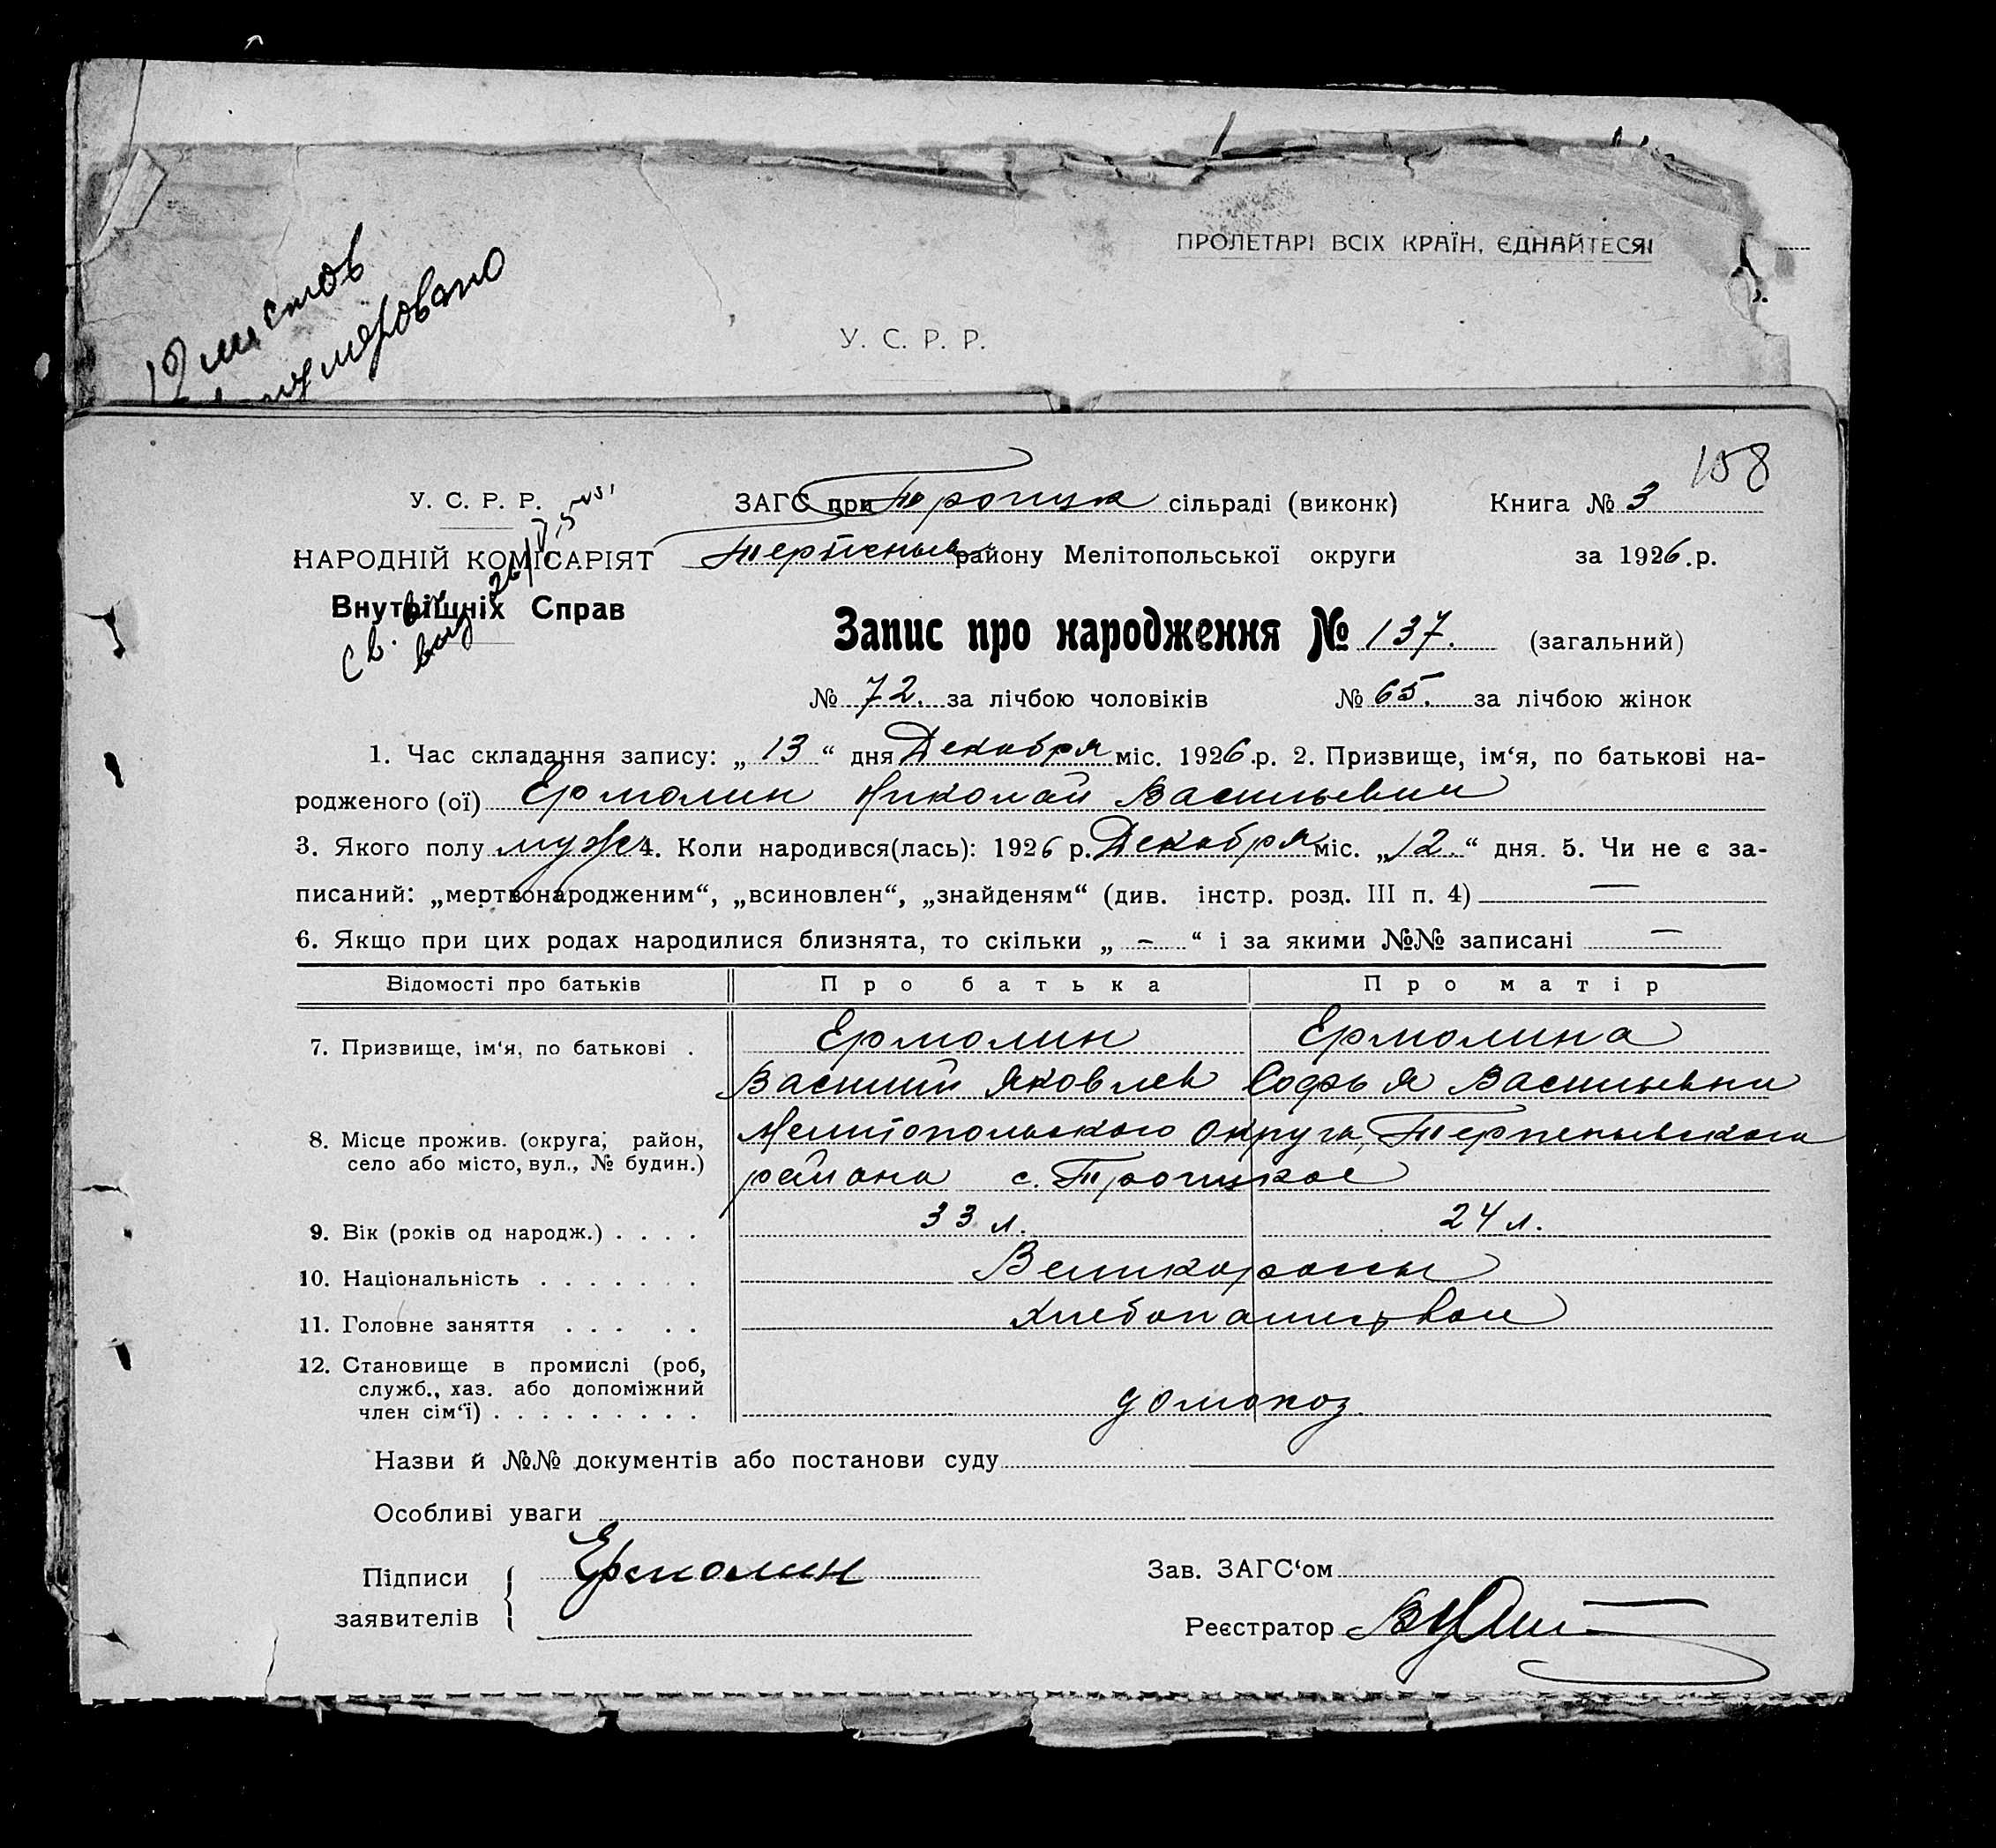 ПРОЛЕТАРІ ВСІХ КРАЇН, ЄДНАЙТЕСЯ!
У. С. Р. Р.
листов
108
У. С. Р. Р.
ЗАГС при Троицк сільраді (виконк)
Книга № 3
НАРОДНІЙ КОМІСАРІЯТ
Терпеньев району Мелітопольської округи
за 1926.р.
Внутрішніх Справ
Св. выд
Запис про народження № 137. (загальний)
№ 72. за лічбою чоловіків № 65. за лічбою жінок
1. Час складання запису: „ 13 “ дня Декабря міс. 1926.р. 2. Призвище, ім‘я, по батькові на-
родженого (ої) Ермолин Николай Васильевич
3. Якого полу муж 4. Коли народився(лась): 1926 р. Декабря міс. „12.“ дня. 5. Чи не є за-
писаний: „мертвонародженим“, „всиновлен“, „знайденям“ (див. інстр. розд. III п. 4) —
6. Якщо при цих родах народилися близнята, то скільки „ – “ і за якими №№ записані —
Відомості про батьків
Про батька
Про матір
7. Призвище, ім‘я, по батькові .
Ермолин
Ермолина
Василий Яковлев
Софья Васильевна
8. Місце прожив. (округа, район,
село або місто, вул., № будин.)
Мелитопольского Округа, Терпеньевского
района с. Троицкое
9. Вік (років од народж.) . . . .
33 л.
24 л.
10. Національність . . . . . . .
Великороссы
11. Головне заняття . . . . .
хлебопашеством
12. Становище в промислі (роб,
служб., хаз. або допоміжний
член сім‘ї) . . . . . . . . .
домохоз.
Назви й №№ документів або постанови суду
Особливі уваги
Підписи
заявителів
Ермолин
Зав. ЗАГС‘ом
Реєстратор